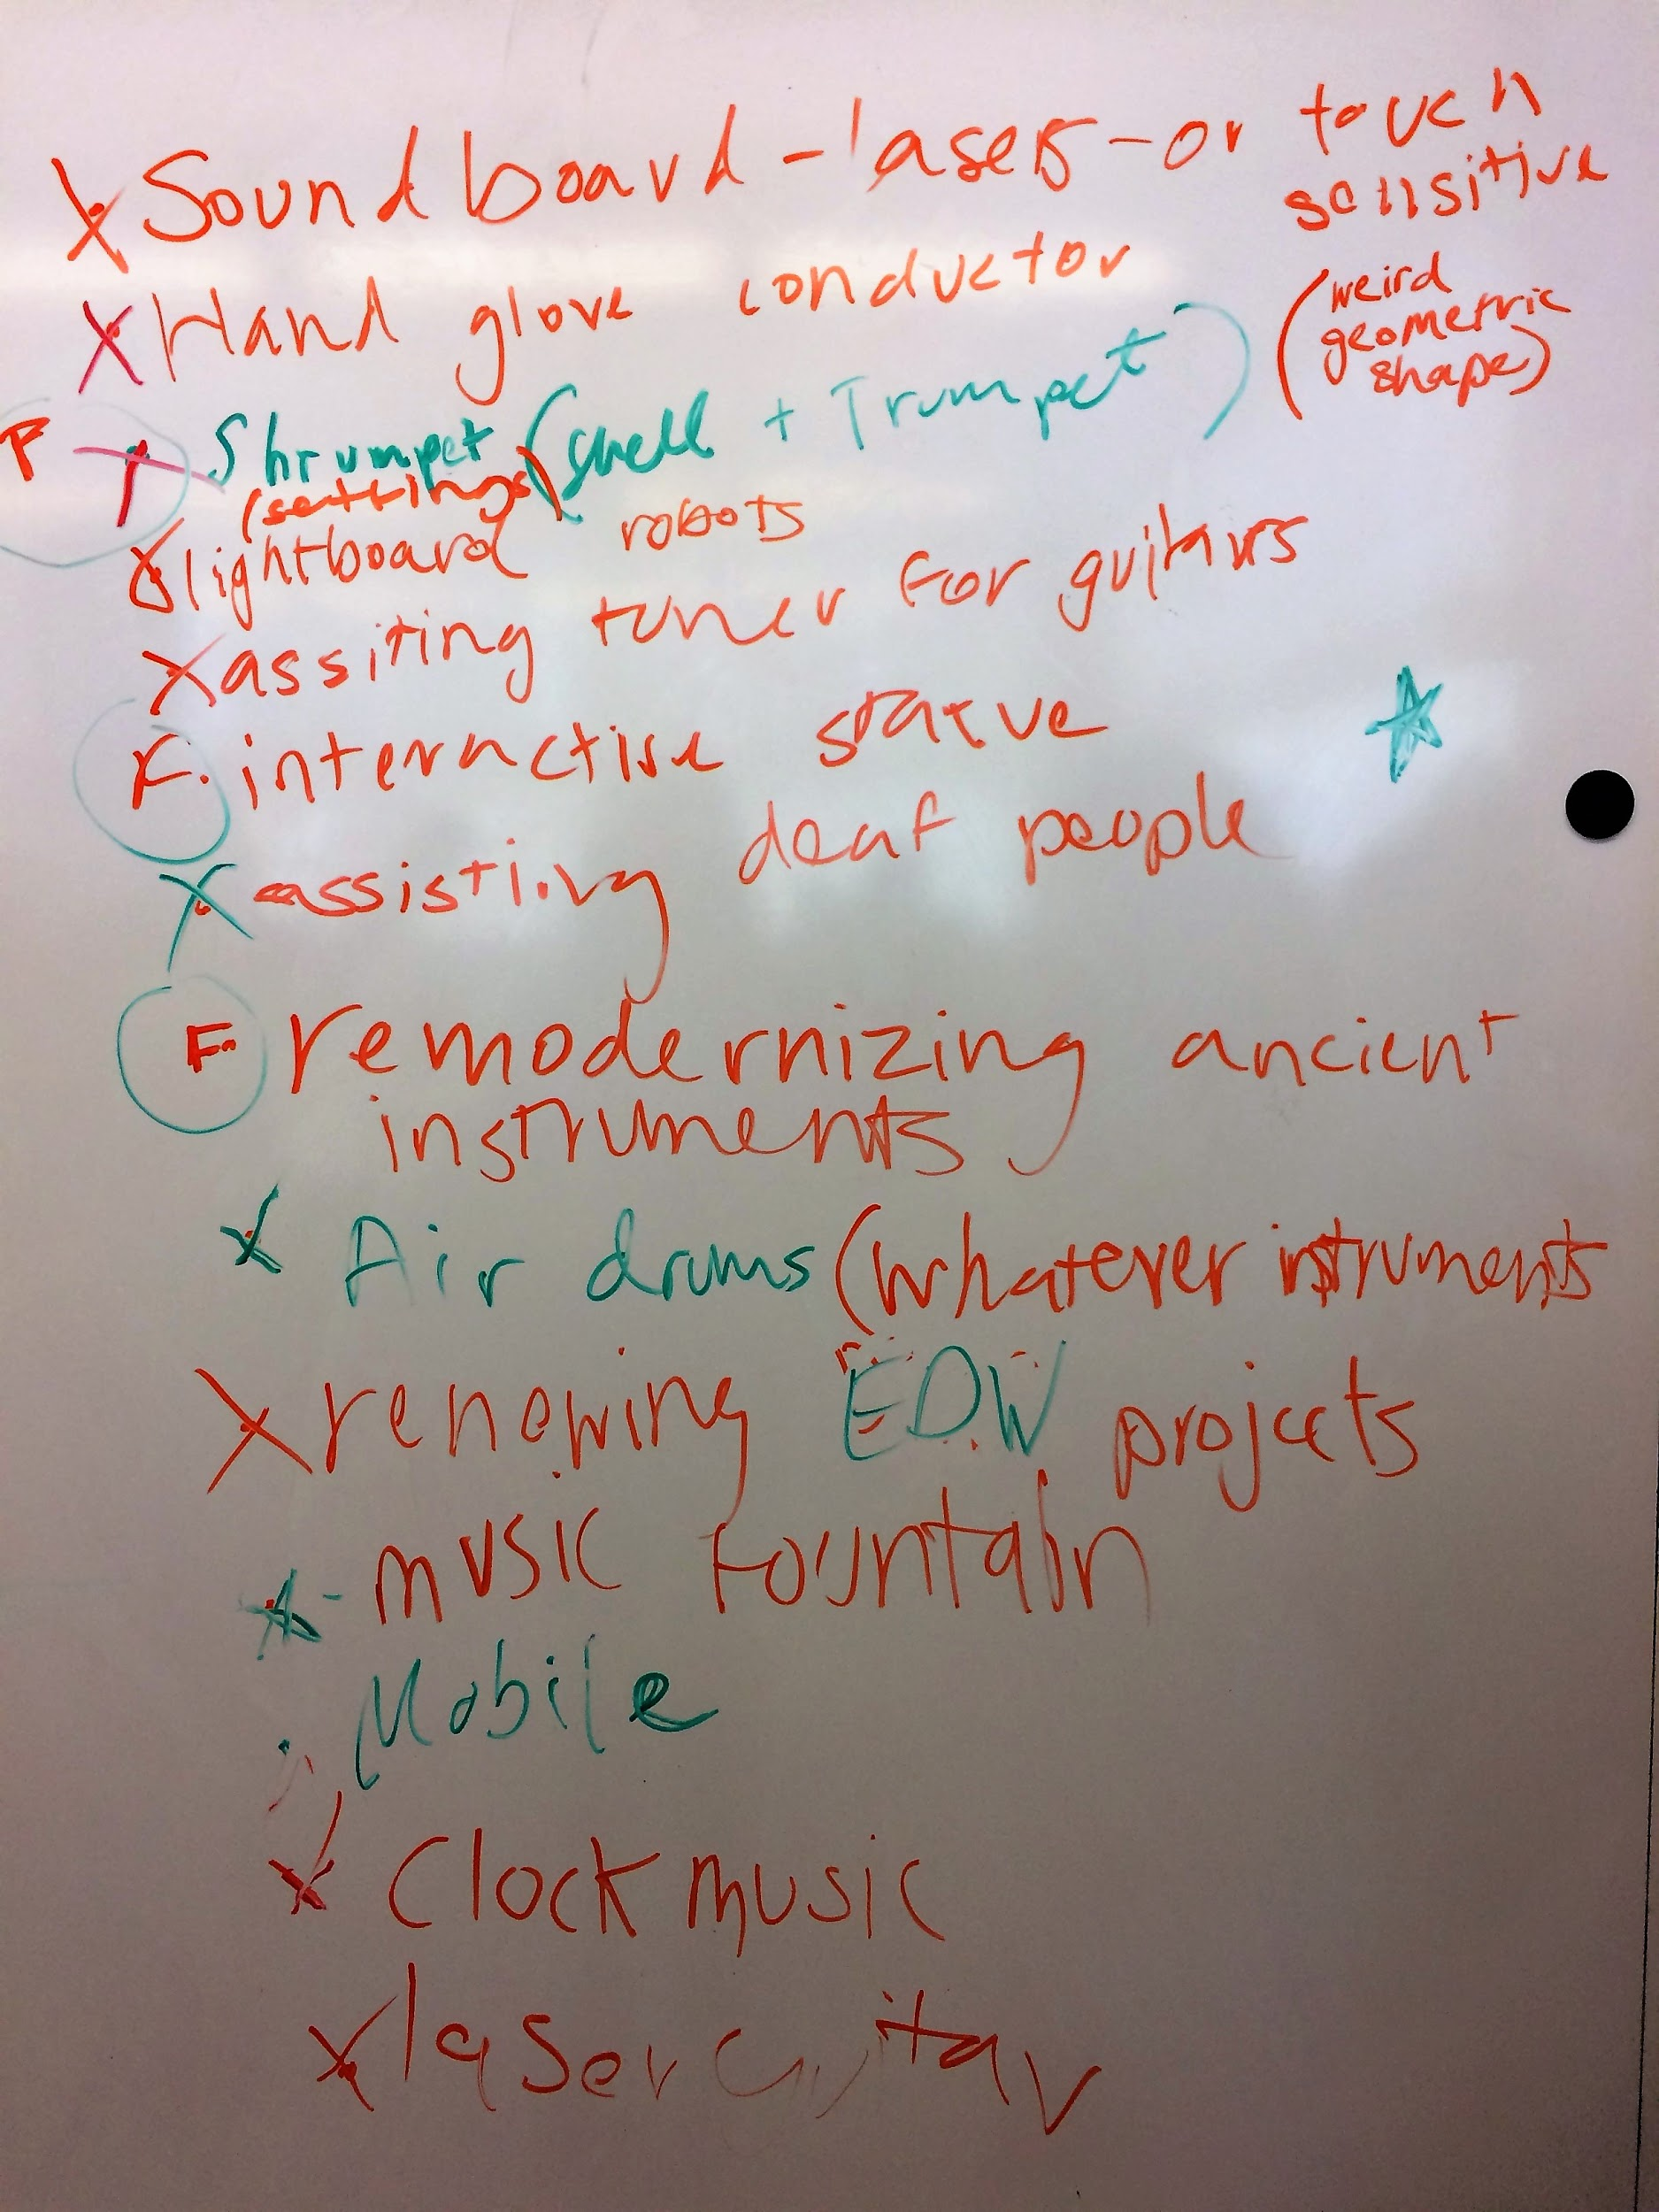 X Soundboard - lasers - or touch
sensitive
(weird
geometric
shape)
X Hand glove conductor
F Shrumpet (Shell + Trumpet)
(settings)
X lightboard robots
X assiting tuner for guitars
F. interactive statue
X assisting deaf people
F. remodernizing ancient
instruments
X Air drums (whatever instruments
X renewing EDW projects
- music fountain
. Mobile
X Clock music
X laser Guitar